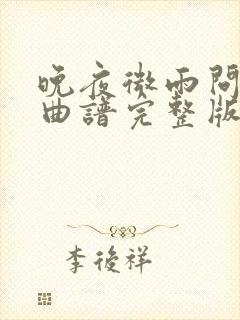 晚夜微雨問
曲譜完整版
李後祥